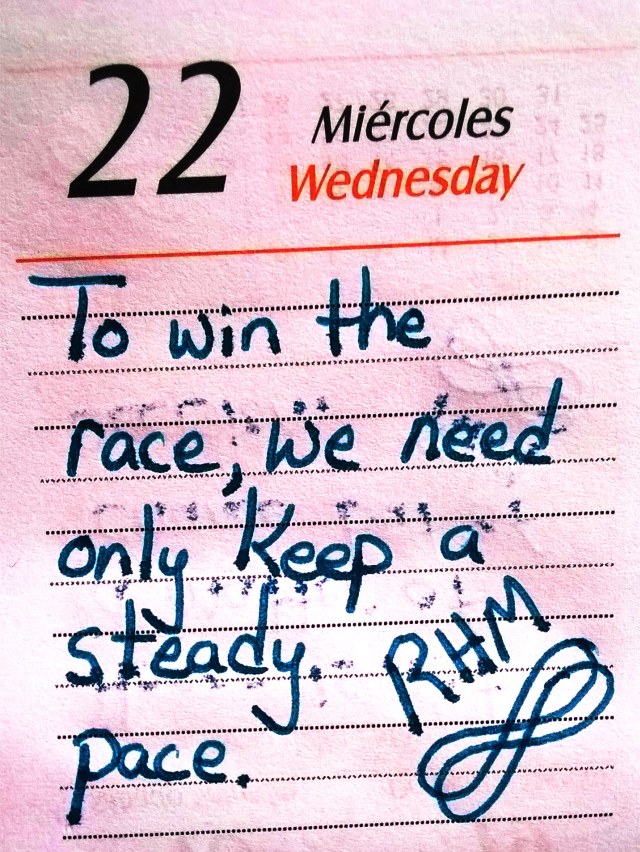 22 Miércoles
Wednesday
To win the
race, we need
only keep a
steady
pace.
RHM